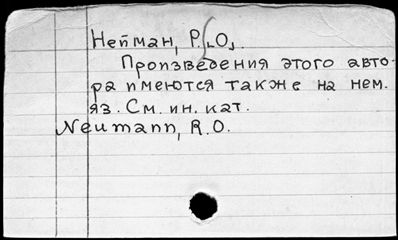 Нейман, Р. О.
Произведения этого авто-
ра имеются также на нем.
яз. См. ин. кат.
Neumann, R.O.